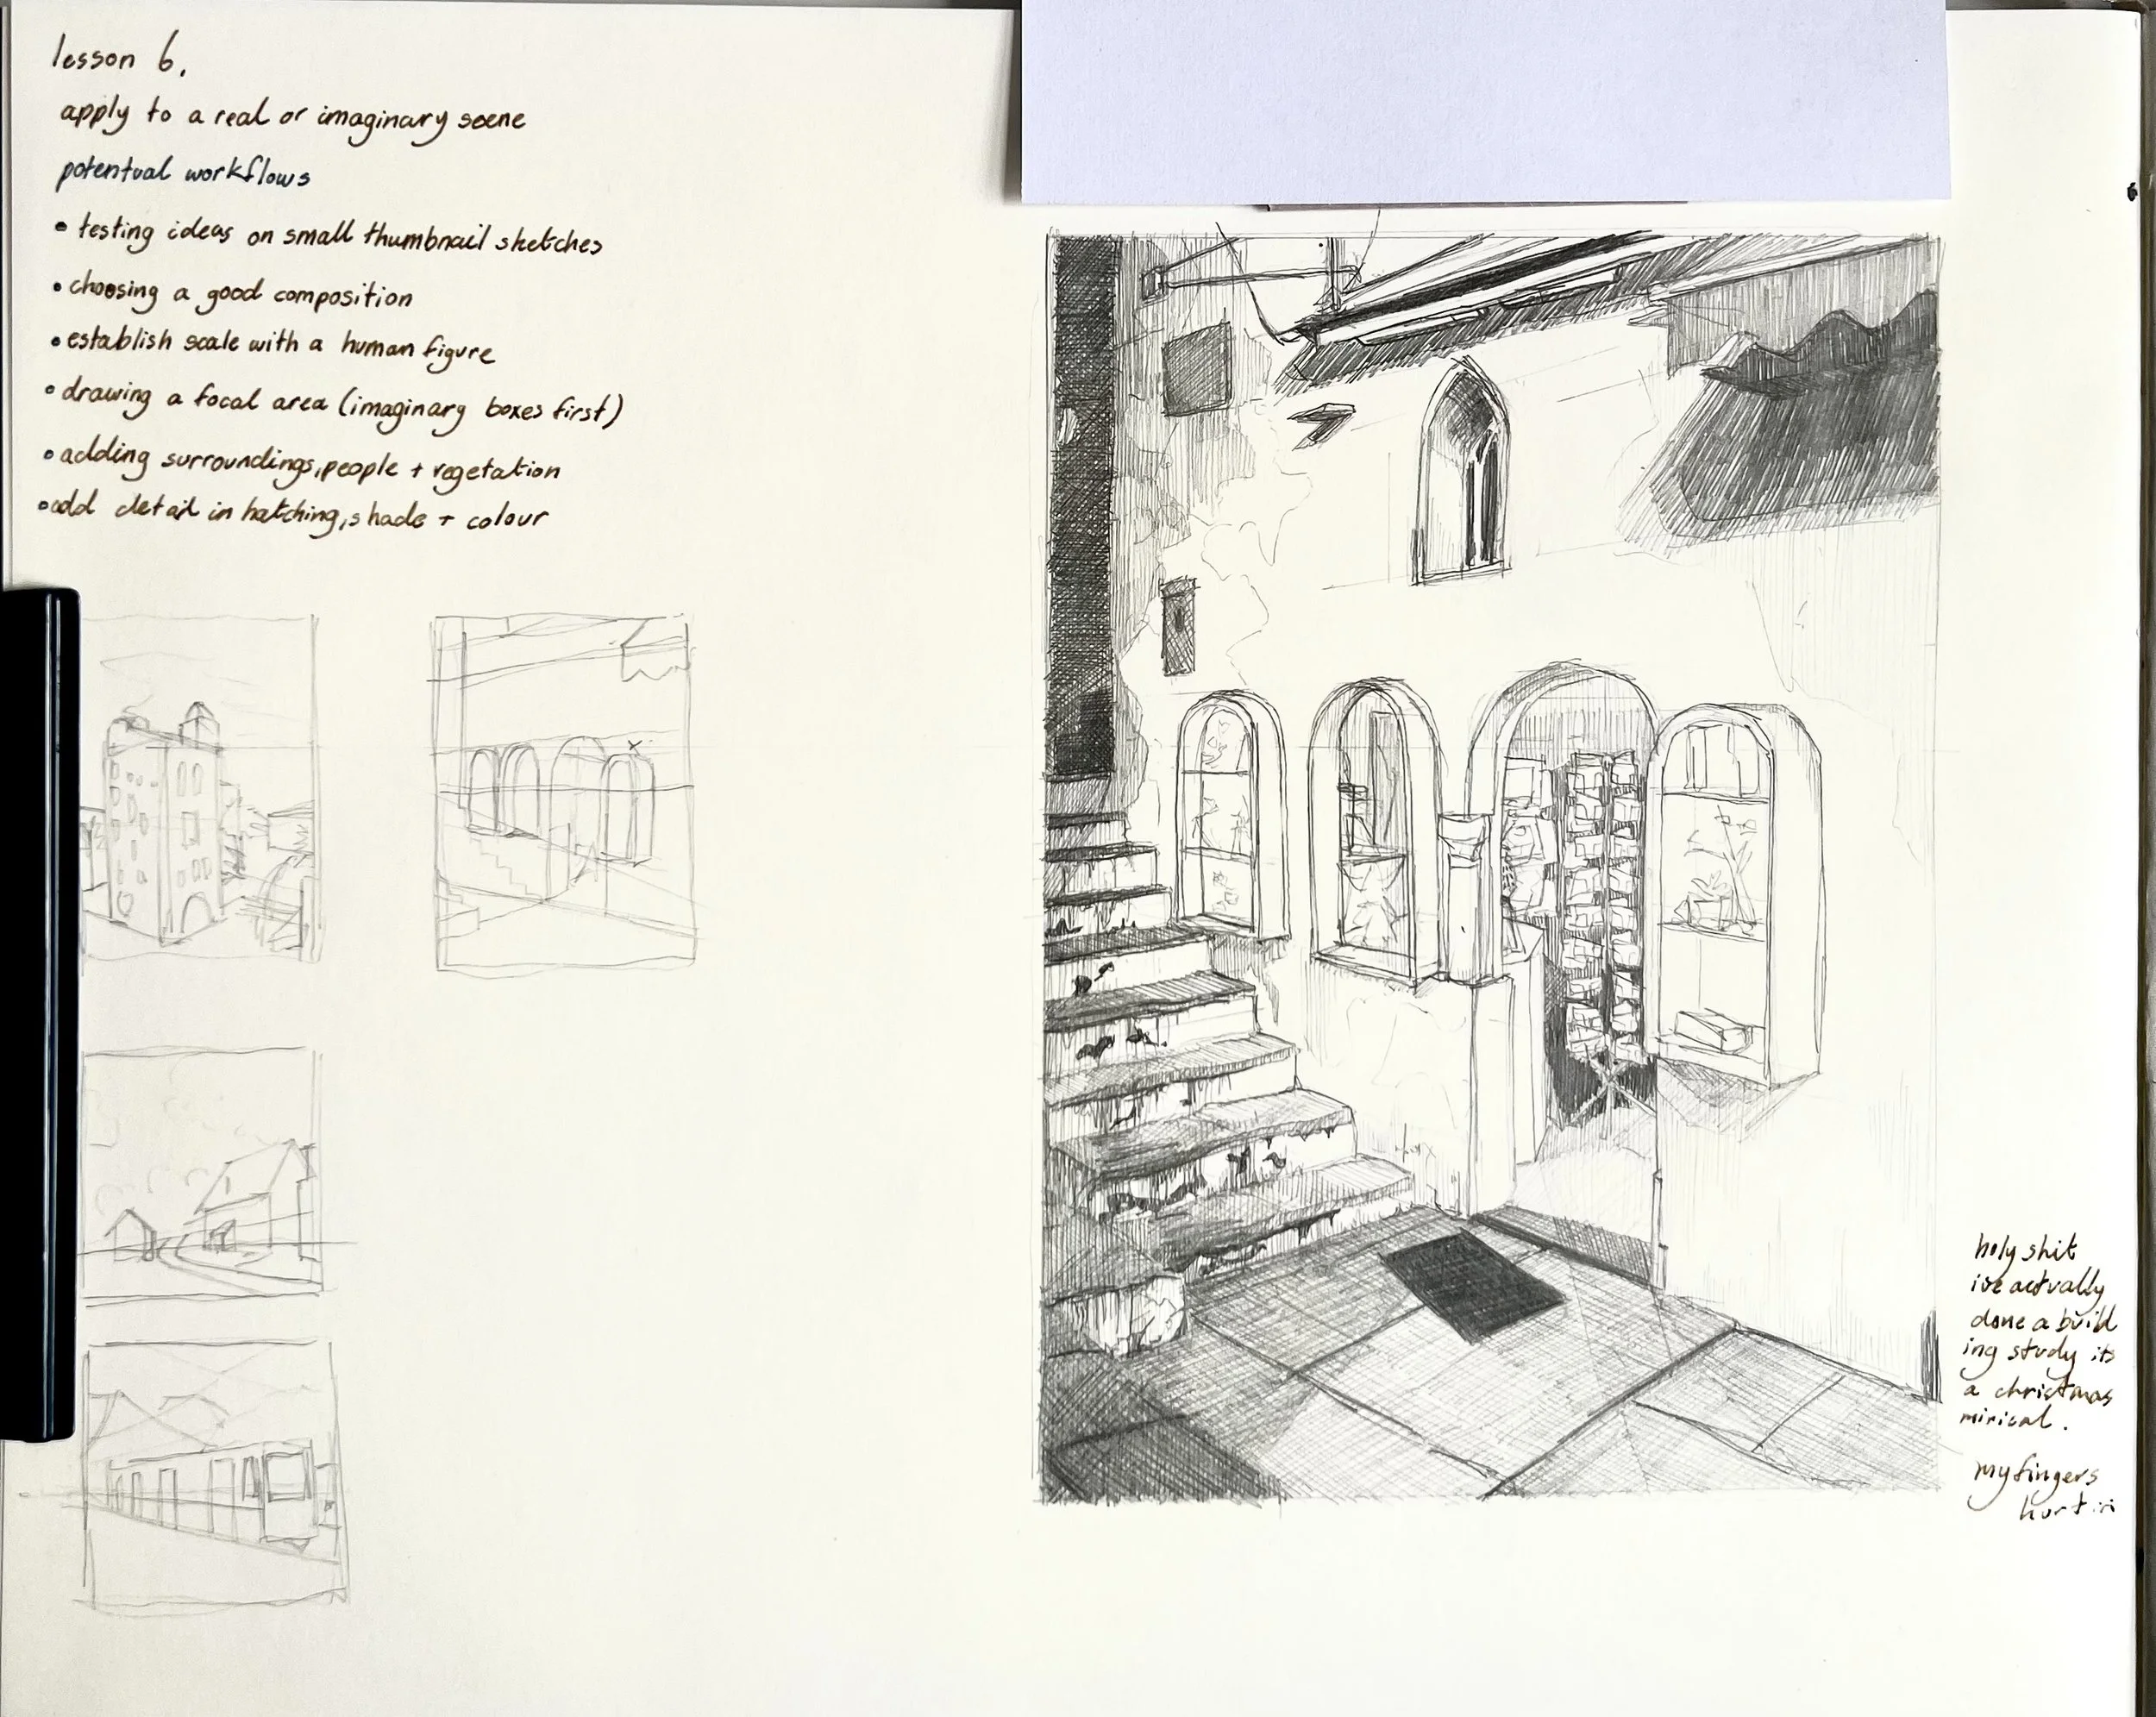 lesson 6.
apply to a real or imaginary scene
potentual workflows
• testing ideas on small thumbnail sketches
• choosing a good composition
• establish scale with a human figure
• drawing a focal area (imaginary boxes first)
• adding surroundings, people + vegetation
• add detail in hatching, shade + colour
holy shit
ive actually
done a build
ing study its
a christmas
mirical.
my fingers
hurt